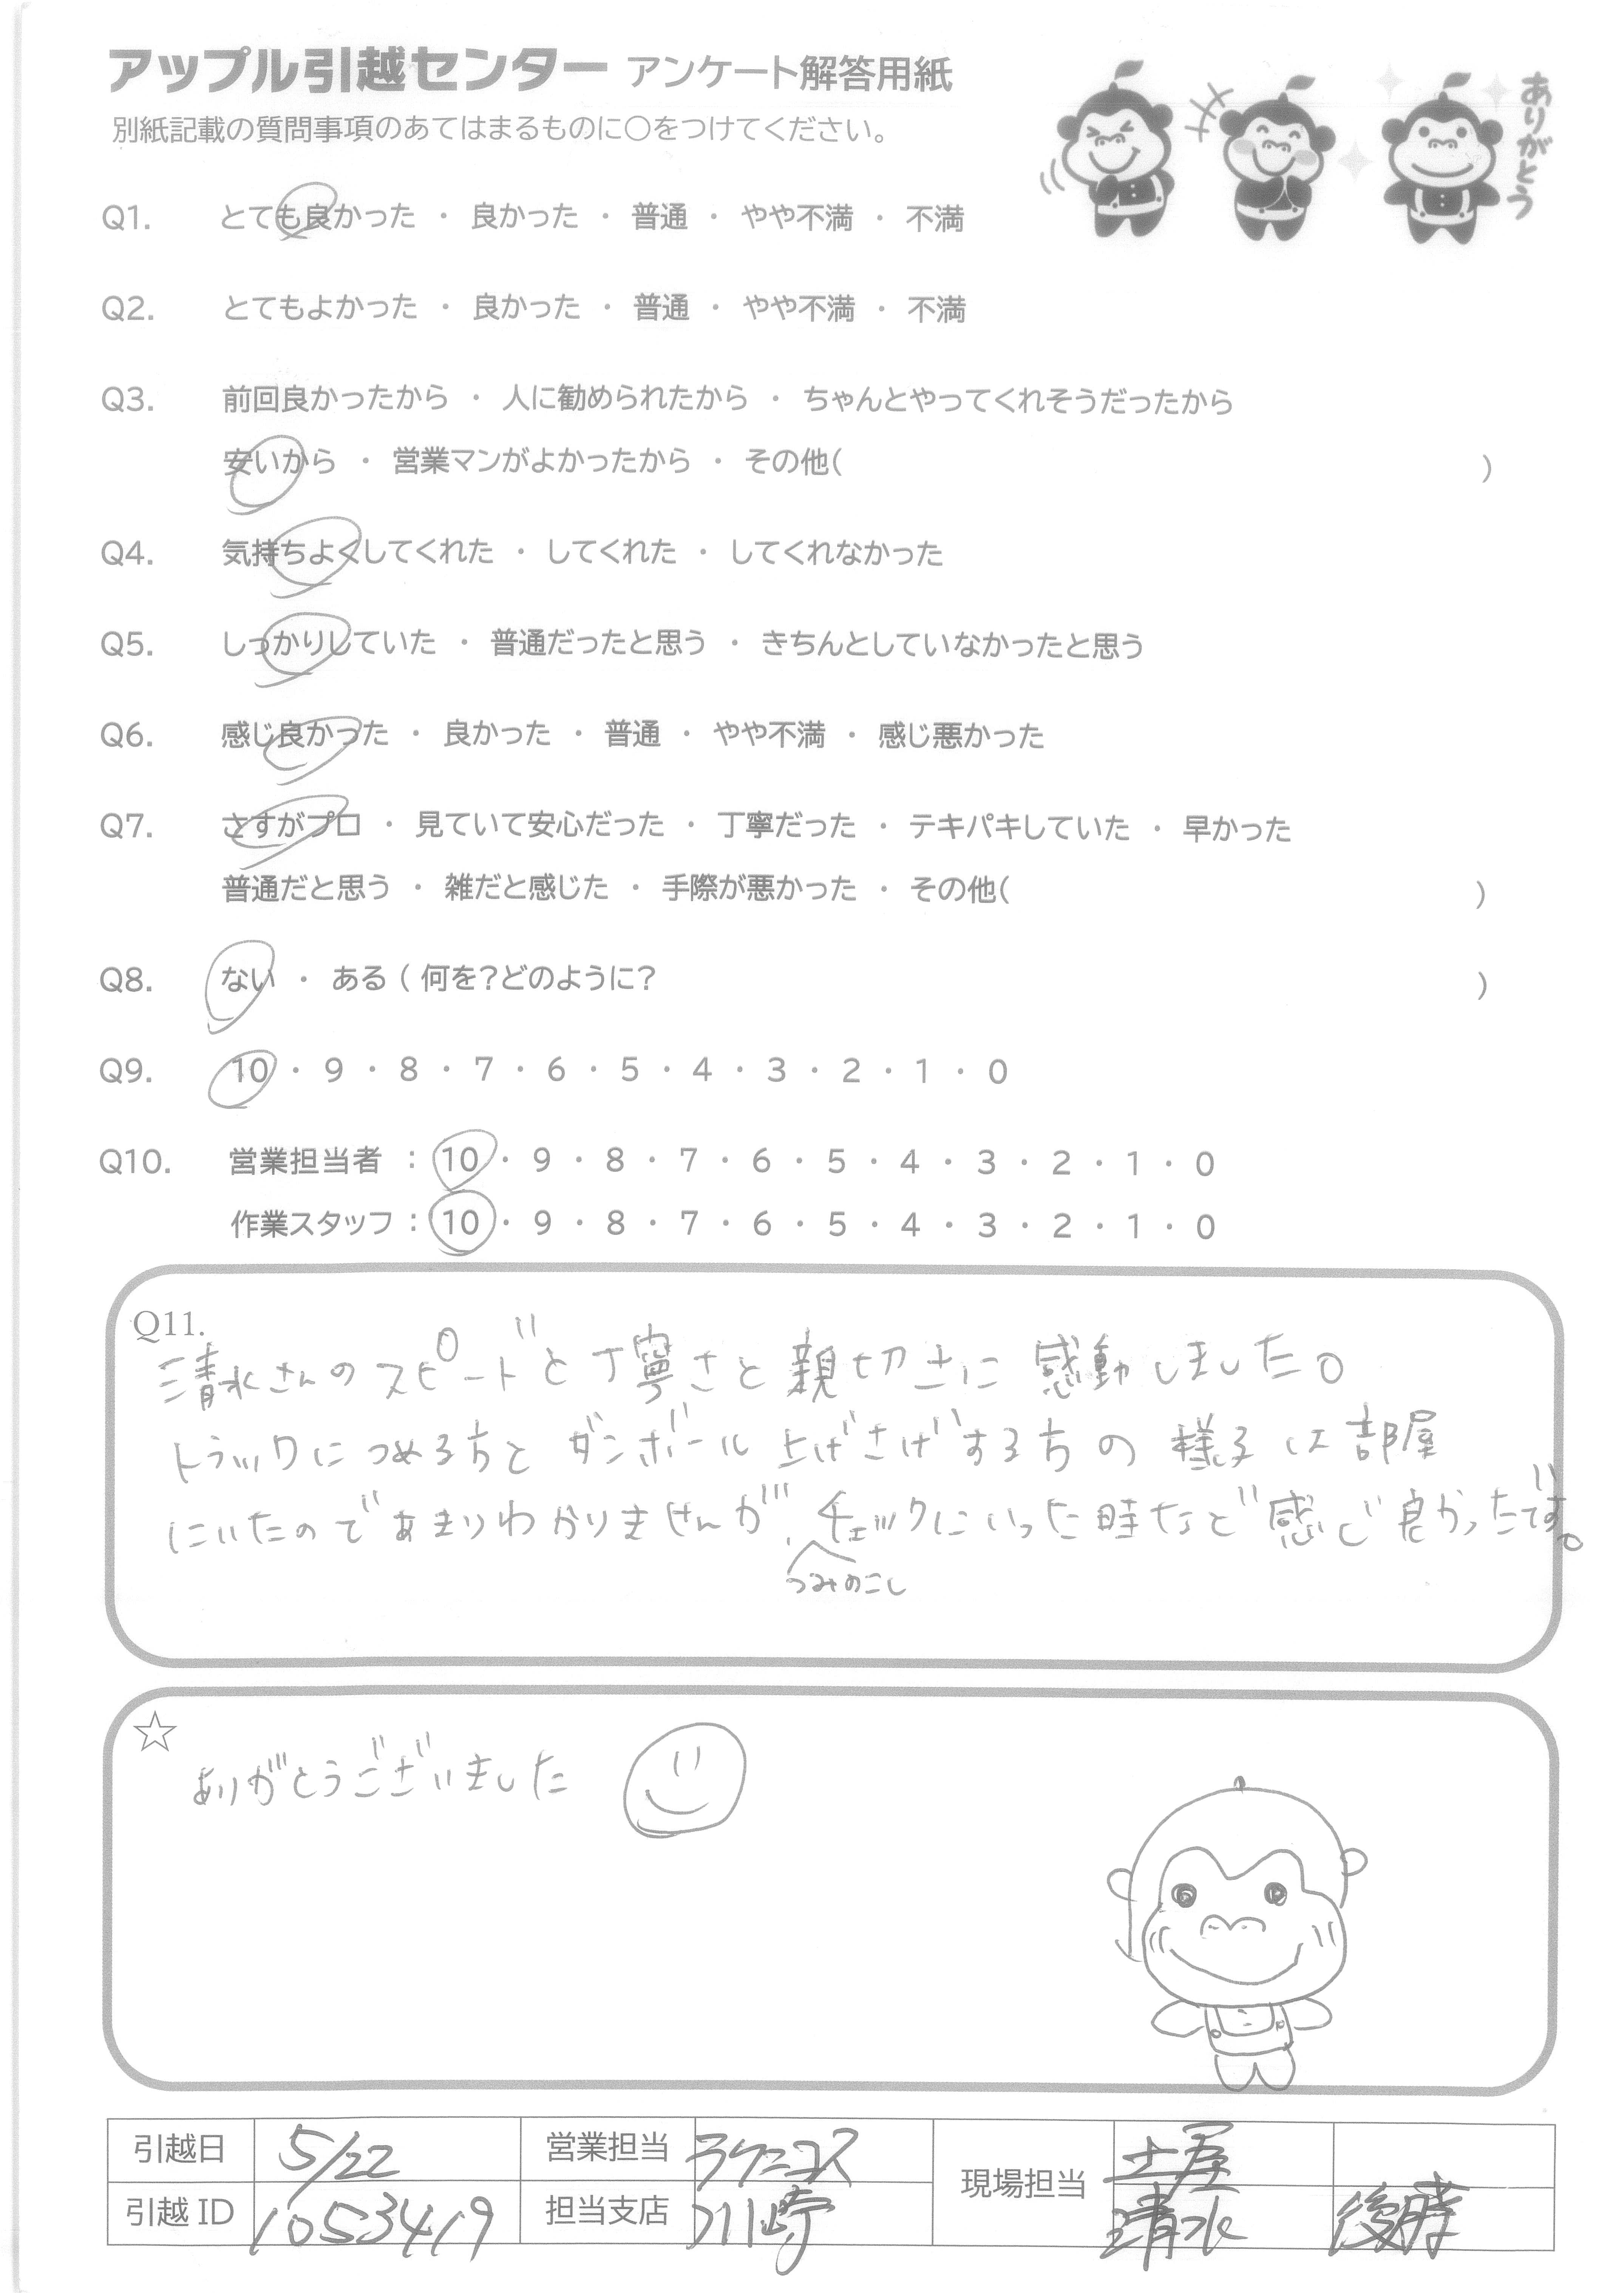 アップル引越センター アンケート解答用紙
ありがとう
別紙記載の質問事項のあてはまるものに○をつけてください。
Q1. とても良かった ・ 良かった ・ 普通 ・ やや不満 ・ 不満
Q2. とてもよかった ・ 良かった ・ 普通 ・ やや不満 ・ 不満
Q3. 前回良かったから ・ 人に勧められたから ・ ちゃんとやってくれそうだったから
安いから ・ 営業マンがよかったから ・ その他( )
Q4. 気持ちよくしてくれた ・ してくれた ・ してくれなかった
Q5. しっかりしていた ・ 普通だったと思う ・ きちんとしていなかったと思う
Q6. 感じ良かった ・ 良かった ・ 普通 ・ やや不満 ・ 感じ悪かった
Q7. さすがプロ ・ 見ていて安心だった ・ 丁寧だった ・ テキパキしていた ・ 早かった
普通だと思う ・ 雑だと感じた ・ 手際が悪かった ・ その他( )
Q8. ない ・ ある ( 何を?どのように? )
Q9. 10 ・ 9 ・ 8 ・ 7 ・ 6 ・ 5 ・ 4 ・ 3 ・ 2 ・ 1 ・ 0
Q10. 営業担当者 : 10 ・ 9 ・ 8 ・ 7 ・ 6 ・ 5 ・ 4 ・ 3 ・ 2 ・ 1 ・ 0
作業スタッフ : 10 ・ 9 ・ 8 ・ 7 ・ 6 ・ 5 ・ 4 ・ 3 ・ 2 ・ 1 ・ 0
Q11.
清水さんのスピードと丁寧さと親切さに感動しました。
トラックにつめる方とダンボール上げさげする方の様子は部屋
にいたのであまりわかりませんが、チェックにいった時など感じ良かったです。
つみのこし
☆
ありがとうございました
引越日 5/22 営業担当 現場担当 土屋
引越 ID 1053419 担当支店 川崎 清水